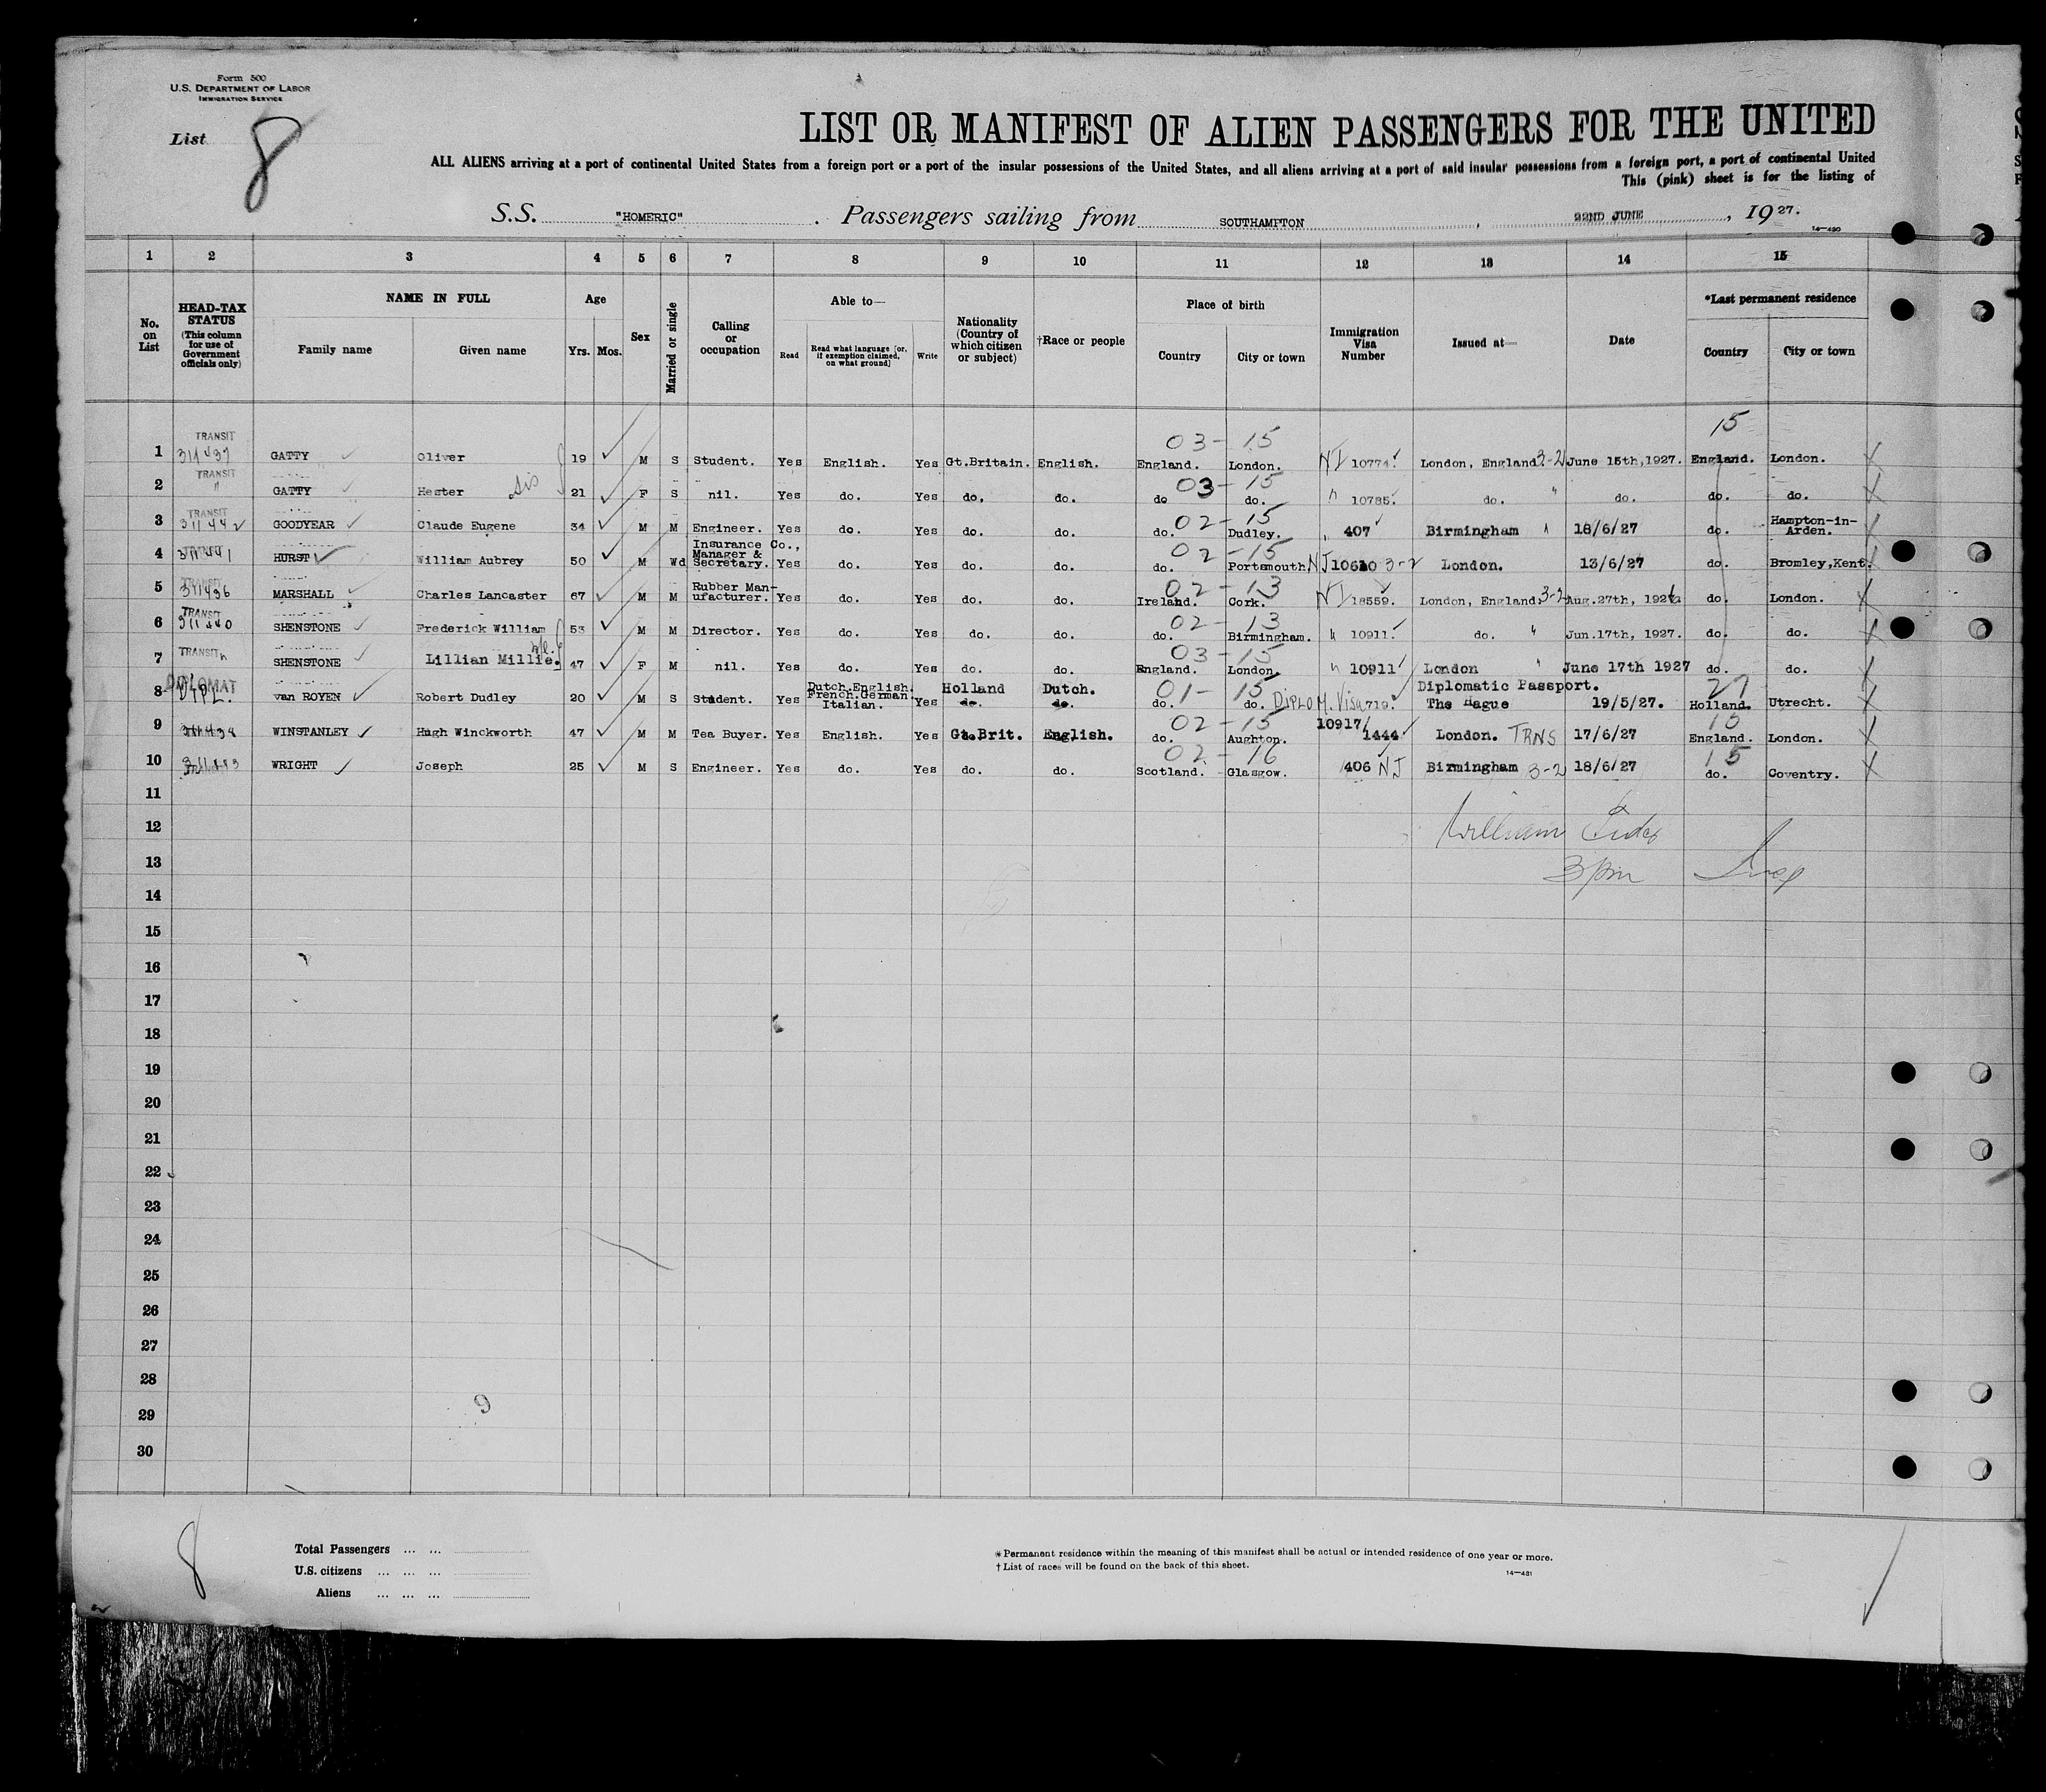 Form 500
U.S. DEPARTMENT OF LABOR
IMMIGRATION SERVICE
List 8
LIST OR MANIFEST OF ALIEN PASSENGERS FOR THE UNITED
ALL ALIENS arriving at a port of continental United States from a foreign port or a port of the insular possessions of the United States, and all aliens arriving at a port of said insular possessions from a foreign port, a port of continental United
This (pink) sheet is for the listing of
S.S. "HOMERIC". Passengers sailing from SOUTHAMPTON, 22ND JUNE, 1927.
14—430
1 2 3 4 5 6 7 8 9 10 11 12 13 14 15
No. on List
HEAD-TAX STATUS (This column for use of Government officials only)
NAME IN FULL
Family name Given name
Age
Yrs. Mos.
Sex
Married or single
Calling or occupation
Able to—
Read Read what language [or, if exemption claimed, on what ground] Write
Nationality (Country of which citizen or subject)
†Race or people
Place of birth
Country City or town
Immigration Visa Number
Issued at—
Date
*Last permanent residence
Country City or town
03-15 15
1 TRANSIT 311437 GATTY Oliver 19 M S Student. Yes English. Yes Gt.Britain. English. England. London. NI 10774. London, England. 3-2 June 15th,1927. England. London.
2 TRANSIT " GATTY Hester sis 21 F S nil. Yes do. Yes do. do. do 03-15 do. " 10785. do. " do. do. do.
3 TRANSIT 311442 GOODYEAR Claude Eugene 34 M M Engineer. Yes do. Yes do. do. do. 02-15 Dudley. " 407 Birmingham " 18/6/27 do. Hampton-in-Arden.
4 311441 HURST William Aubrey 50 M Wd Insurance Co., Manager & Secretary. Yes do. Yes do. do. do. 02-15 Portsmouth NJ 10610 3-2 London. 13/6/27 do. Bromley,Kent.
5 TRANSIT 311436 MARSHALL Charles Lancaster 67 M M Rubber Manufacturer. Yes do. Yes do. do. Ireland. 02-13 Cork. NI 18559. London, England. 3-2 Aug.27th, 1926 do. London.
6 TRANSIT 311440 SHENSTONE Frederick William 53 M M Director. Yes do. Yes do. do. do. 02-13 Birmingham. " 10911. do. " Jun.17th, 1927. do. do.
7 TRANSIT " SHENSTONE Lillian Millie. 47 F M nil. Yes do. Yes do. do. England. 03-15 London. " 10911 London " June 17th 1927 do. do.
8 DIPLOMAT DIPL. van ROYEN Robert Dudley 20 M S Student. Yes Dutch.English. French.German. Italian. Yes Holland do. Dutch. do. do. 01-15 do. DIPLOM. Visa 719. Diplomatic Passport. The Hague 19/5/27. 27 Holland. Utrecht.
9 311438 WINSTANLEY Hugh Winckworth 47 M M Tea Buyer. Yes English. Yes Gt.Brit. English. do. 02-15 Aughton. 10917/1444 London. TRNS 17/6/27 15 England. London.
10 WRIGHT Joseph 25 M S Engineer. Yes do. Yes do. do. Scotland. 02-16 Glasgow. 406 NJ Birmingham 3-2 18/6/27 15 do. Coventry.
11
12 William
13 3pm
14
15
16
17
18
19
20
21
22
23
24
25
26
27
28
29 9
30
8
Total Passengers ... ...
U.S. citizens ... ... ...
Aliens ... ... ...
*Permanent residence within the meaning of this manifest shall be actual or intended residence of one year or more.
†List of races will be found on the back of this sheet.
14—431